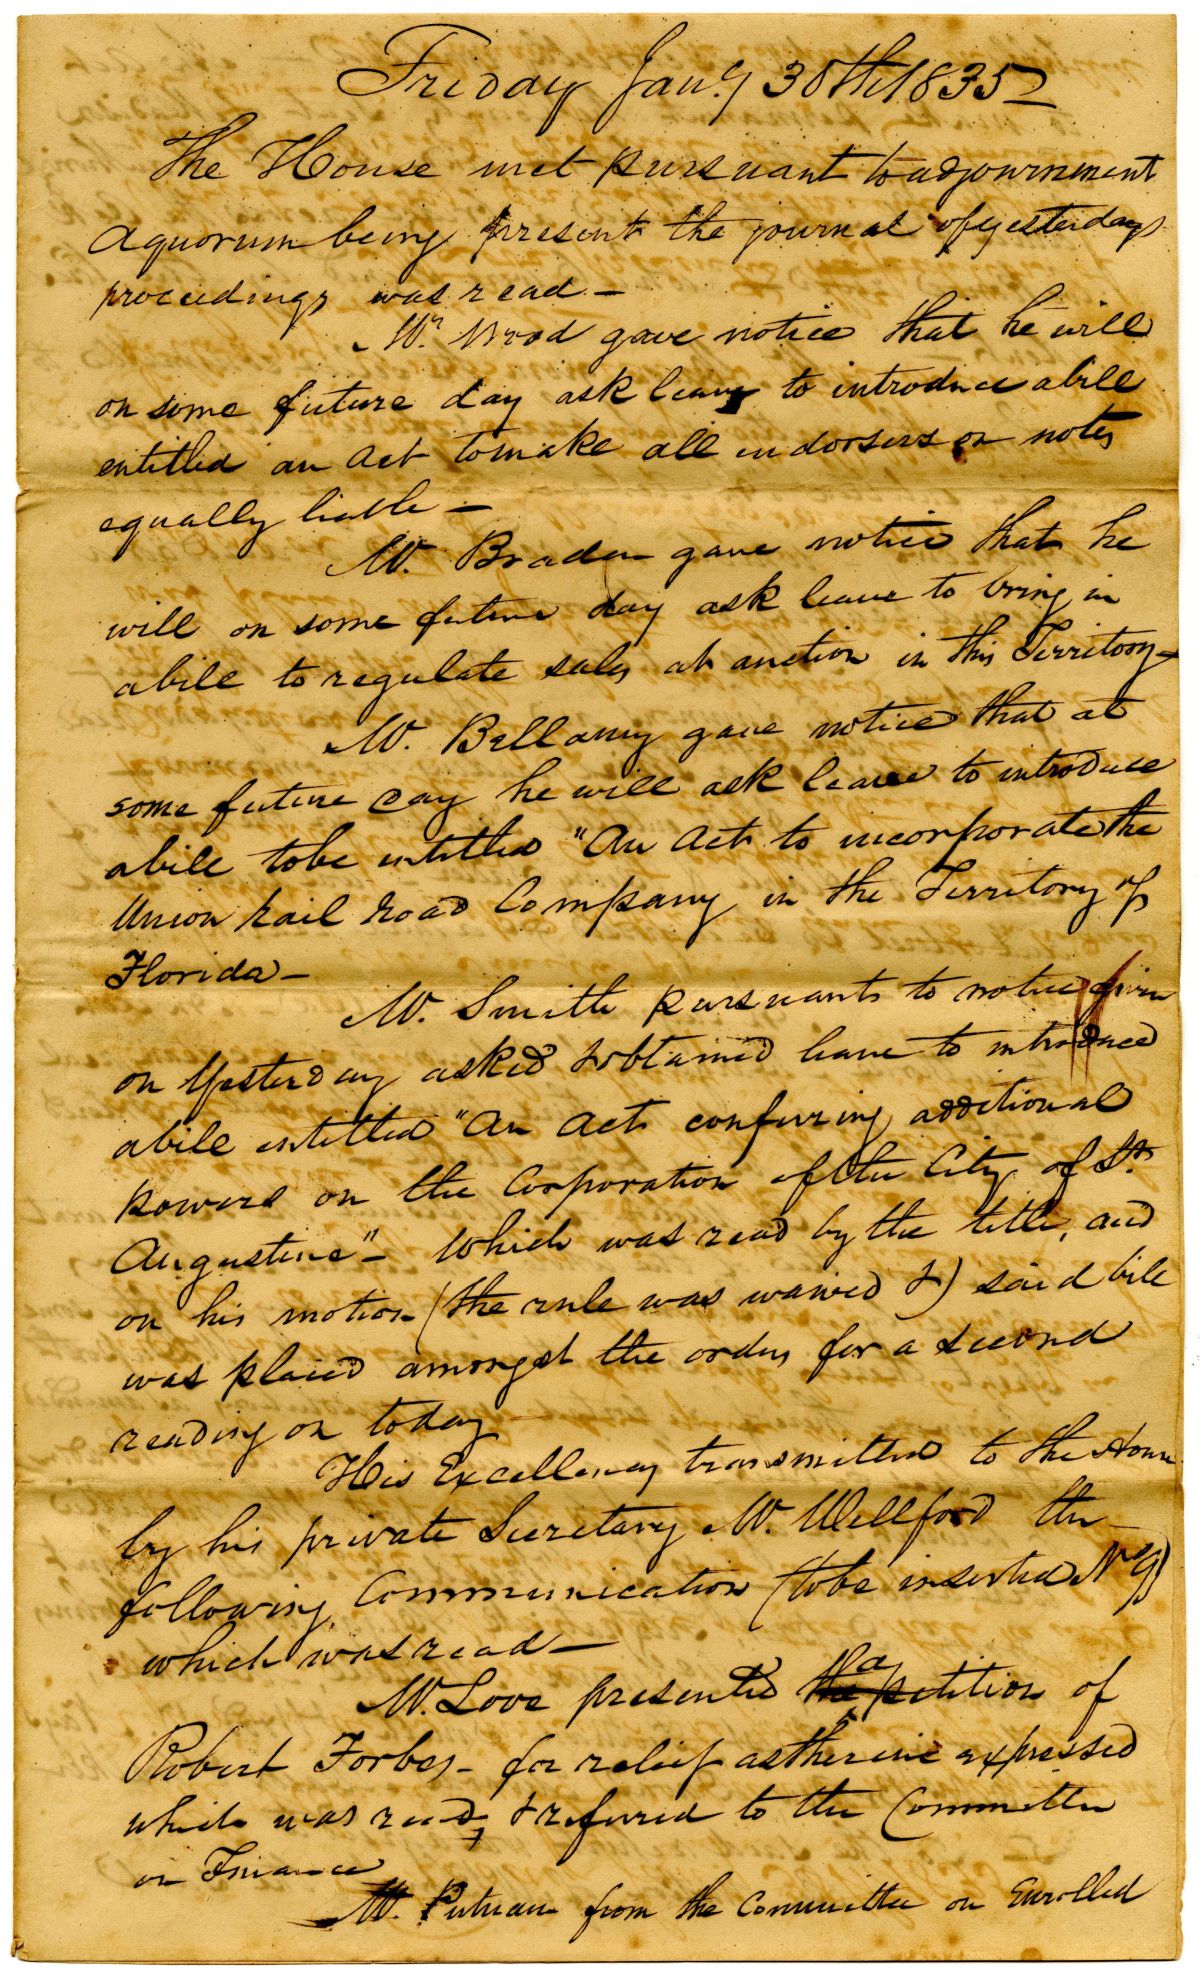 Friday Jany 30th 1835
The House met pursuant to adjournment
a quorum being present the journal of yesterdays
proceedings was read —
Mr. Wood gave notice that he will
on some future day ask leave to introduce a bill
entitled an act to make all endorsers on notes
equally liable —
Mr. Braden gave notice that he
will on some future day ask leave to bring in
a bill to regulate sales at auction in this Territory —
Mr. Bellamy gave notice that at
some future day he will ask leave to introduce
a bill to be entitled "An Act to incorporate the
Union Rail Road Company in the Territory of
Florida —
Mr. Smith pursuant to notice given
on Yesterday asked & obtained leave to introduced
a bill entitled "An Act conferring additional
powers on the Corporation of the City of St.
Augustine" — Which was read by the title, and
on his motion (the rule was waived &) said bill
was placed amongst the orders for a second
reading on today
His Excellency transmitted to the House
by his private Secretary Mr. Wellford the
following Communication (to be inserted
which was read —
Mr. Love presented the a petition of
Robert Forbes — for relief as therein expressed
which was read, & referred to the Committee
on Finance
Mr. Putnam from the Committee on Enrolled